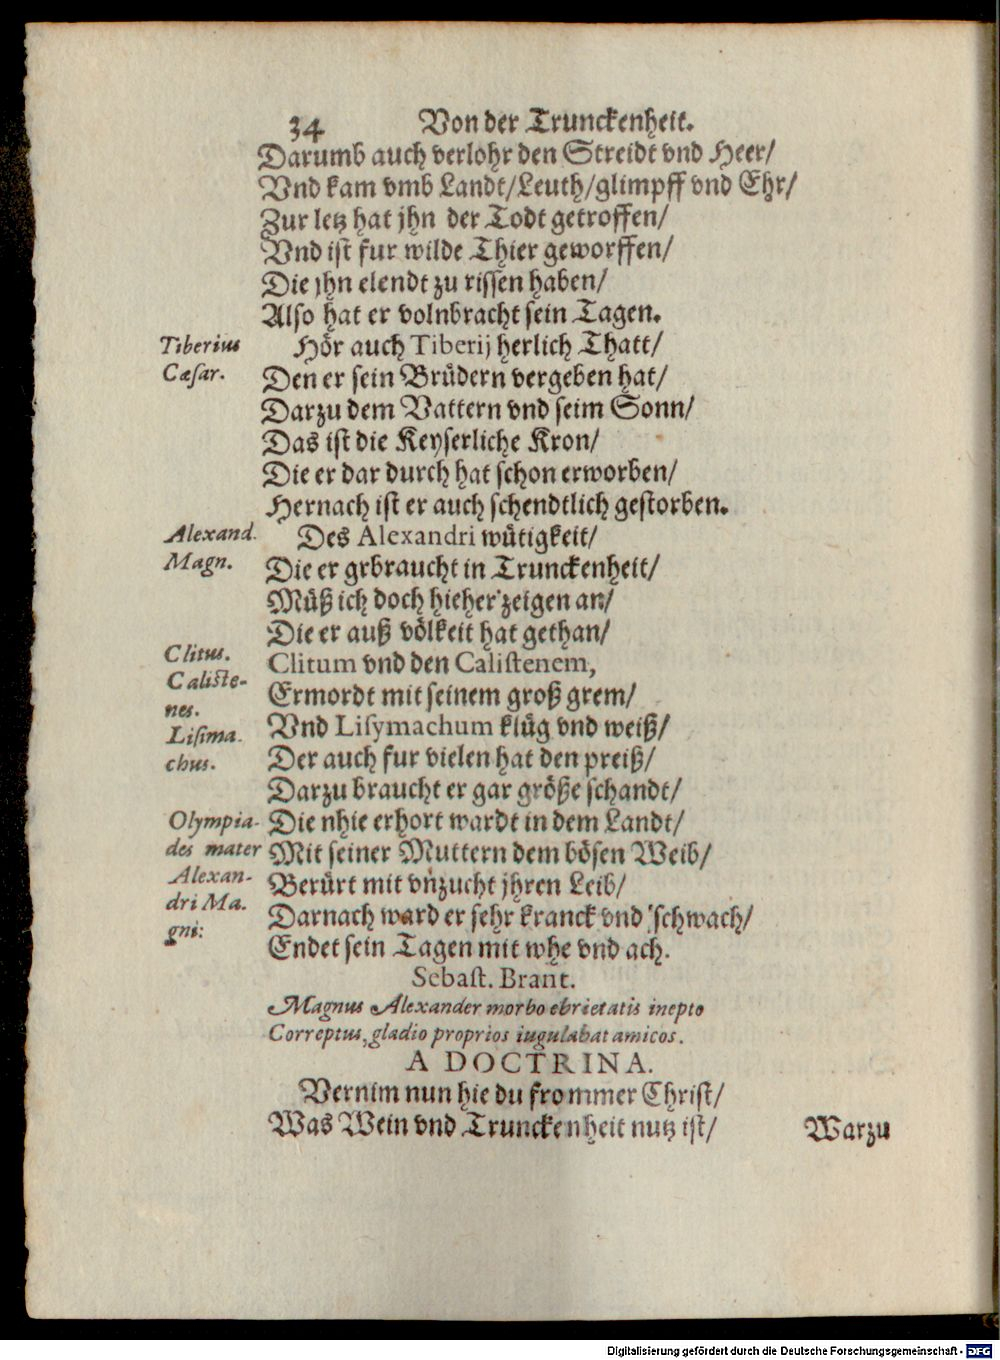 34 Von der Trunckenheit.
Darumb auch verlohr den Streidt vnd Heer/
Vnd kam vmb Landt/Leuth/glimpff vnd Ehr/
Zur letz hat jhn der Todt getroffen/
Vnd ist fur wilde Thier geworffen/
Die jhn elendt zu rissen haben/
Also hat er volnbracht sein Tagen.
Tiberius
Cæsar.
Hör auch Tiberij herlich Thatt/
Den er sein Brüdern vergeben hat/
Darzu dem Vattern vnd seim Sonn/
Das ist die Keyserliche Kron/
Die er dar durch hat schon erworben/
Hernach ist er auch schendtlich gestorben.
Alexand.
Magn.
Des Alexandri wütigkeit/
Die er grbraucht in Trunckenheit/
Müß ich doch hieher zeigen an/
Die er auß völkeit hat gethan/
Clitus.
Caliste-
nes.
Clitum vnd den Calistenem,
Ermordt mit seinem groß grem/
Lisima.
chus.
Vnd Lisymachum klüg vnd weiß/
Der auch fur vielen hat den preiß/
Darzu braucht er gar größe schandt/
Olympia-
des mater
Alexan-
dri Ma.
gni:
Die nhie erhort wardt in dem Landt/
Mit seiner Muttern dem bösen Weib/
Berürt mit vnzucht jhren Leib/
Darnach ward er sehr kranck vnd schwach/
Endet sein Tagen mit whe vnd ach.
Sebast. Brant.
Magnus Alexander morbo ebrietatis inepto
Correptus, gladio proprios iugulabat amicos.
A DOCTRINA.
Vernim nun hie du frommer Christ/
Was Wein vnd Trunckenheit nutz ist/
Warzu
Digitalisierung gefördert durch die Deutsche Forschungsgemeinschaft - DFG